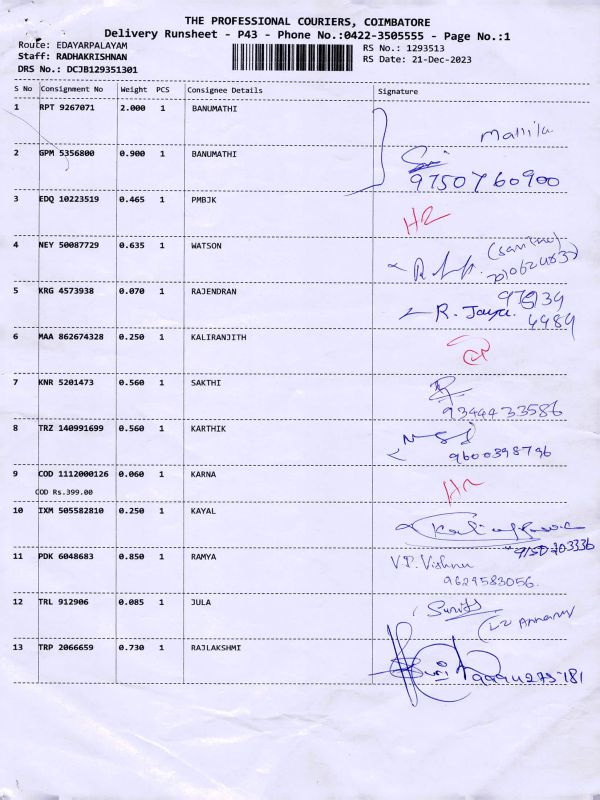 THE PROFESSIONAL COURIERS, COIMBATORE
Delivery Runsheet - P43 - Phone No.:0422-3505555 - Page No.:1
Route: EDAYARPALAYAM
Staff: RADHAKRISHNAN
DRS No.: DCJB129351301
RS No.: 1293513
RS Date: 21-Dec-2023
S No Consignment No Weight PCS Consignee Details Signature
1 RPT 9267071 2.000 1 BANUMATHI
2 GPM 5356800 0.900 1 BANUMATHI
9750760900
3 EDQ 10223519 0.465 1 PMBJK
4 NEY 50087729 0.635 1 WATSON
5 KRG 4573938 0.070 1 RAJENDRAN R. Jaya.
4484
6 MAA 862674328 0.250 1 KALIRANJITH
7 KNR 5201473 0.560 1 SAKTHI
9344433586
8 TRZ 140991699 0.560 1 KARTHIK
9600398796
9 COD 1112000126 0.060 1 KARNA
COD Rs.399.00
10 IXM 505582810 0.250 1 KAYAL
11 PDK 6048683 0.850 1 RAMYA V.P. Vishnu
9629583056.
12 TRL 912906 0.085 1 JULA
13 TRP 2066659 0.730 1 RAJLAKSHMI